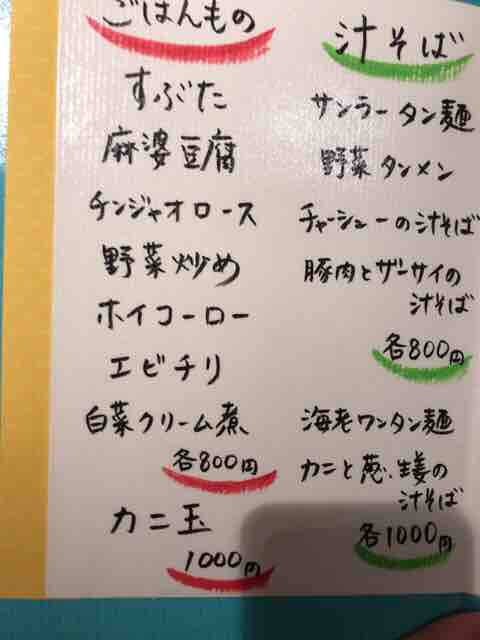 ごはんもの
すぶた
麻婆豆腐
チンジャオロース
野菜炒め
ホイコーロー
エビチリ
白菜クリーム煮
各800円
カニ玉
1000円
汁そば
サンラータン麺
野菜タンメン
チャーシューの汁そば
豚肉とザーサイの
汁そば
各800円
海老ワンタン麺
カニと葱、生姜の
汁そば
各1000円